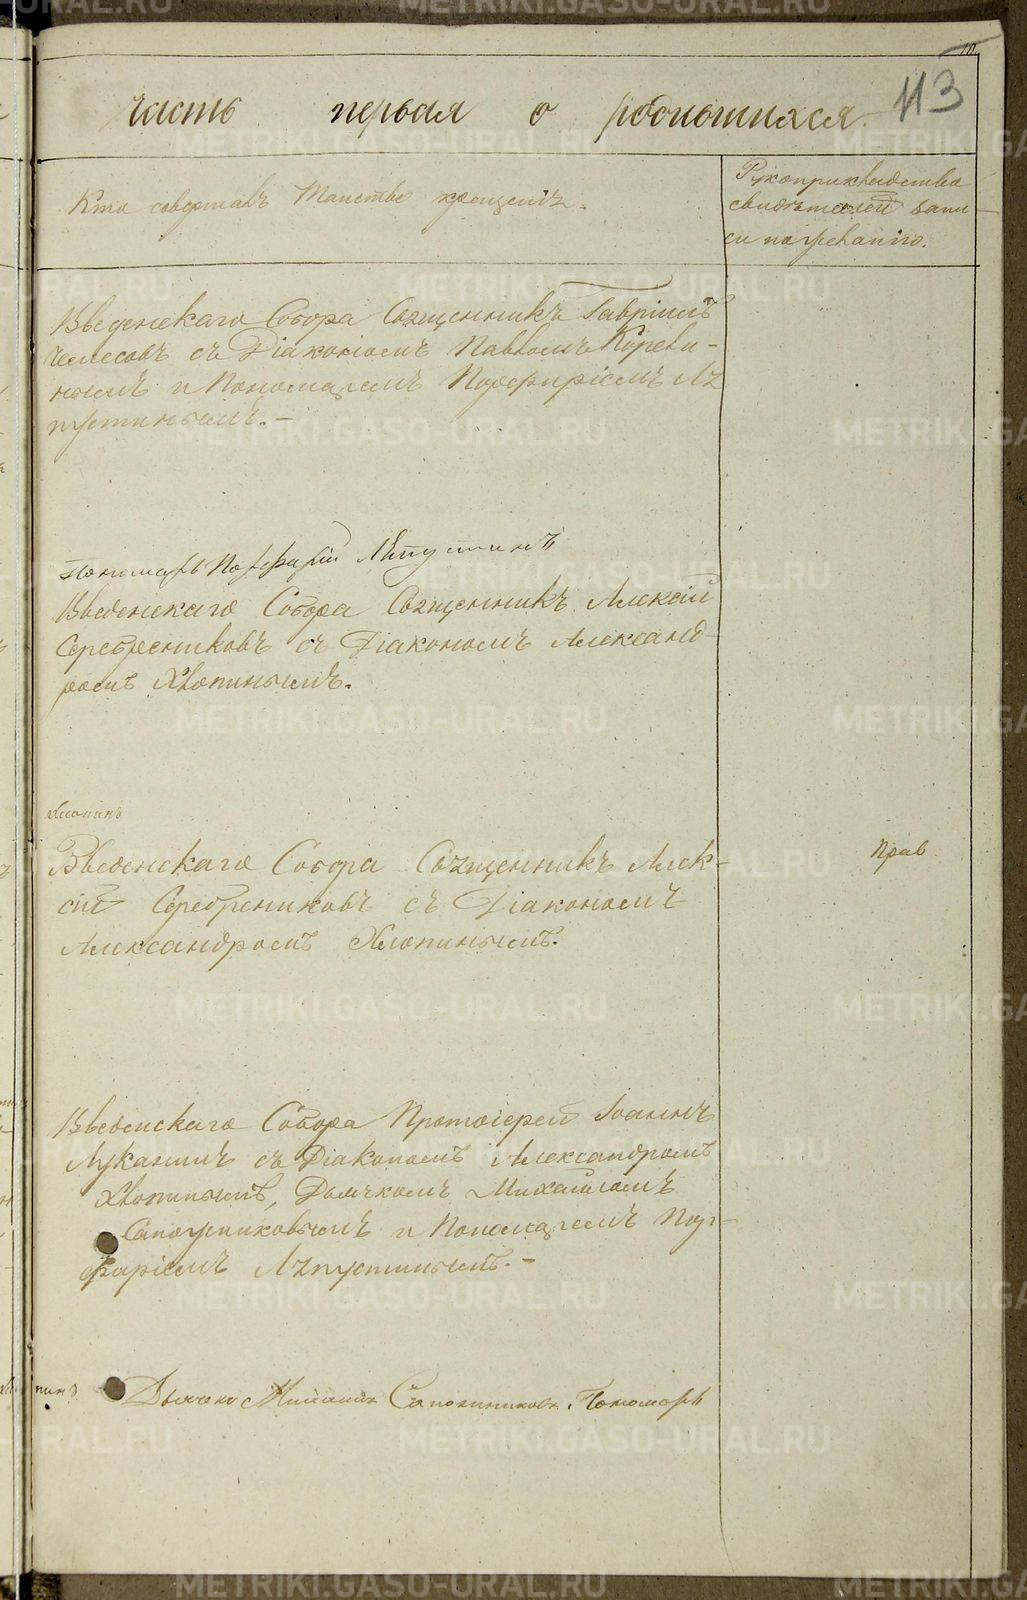 113
часть первая о родившихся
Кто совершалъ Таинство крещенiя.
Рукоприкладство
свидѣтелей запи-
си по желанiю.
Введенскаго Собора Священникъ Гаврiилъ
съ Дiакономъ Павломъ
нымъ и Пономаремъ Порфирiемъ Ла
пустинымъ.-
Пономарь Порфирiй Лапустинъ
Введенскаго Собора Священникъ Алексiй
Серебрениковъ съ Дiакономъ Александ-
ромъ Хлопинымъ.
Хлопинъ
Введенскаго Собора Священникъ Алек-
сiй Серебрениковъ съ Дiакономъ
Александромъ Хлопинымъ.
Прав
Введенскаго Собора Протоiерей Iоаннъ
Луканинъ съ Дiакономъ Александромъ
Хлопинымъ, Дьячкомъ Михаиломъ
Сапожниковымъ и Пономаремъ Пор-
фирiемъ Лапустинымъ.-
пинъ Дьячекъ Михаилъ Сапожниковъ. Пономарь
METRIKI.GASO-URAL.RU